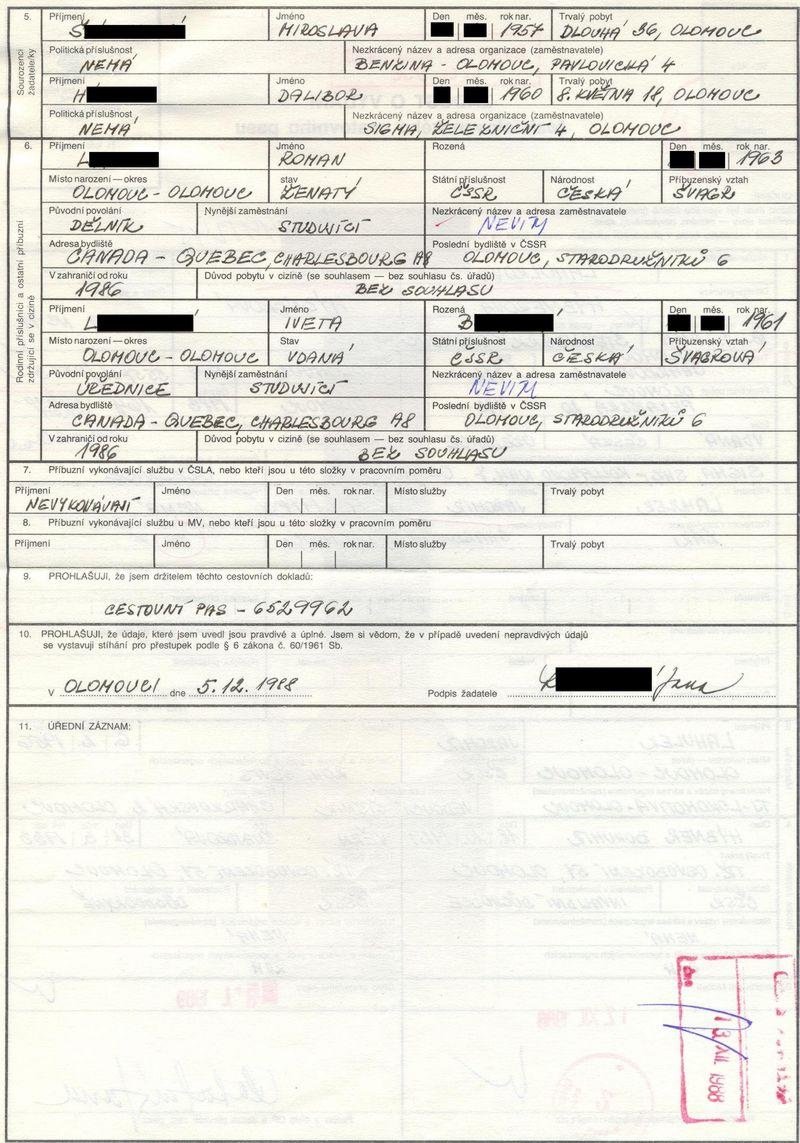 5. Příjmení Jméno Den měs. rok nar. Trvalý pobyt
Š MIROSLAVA 1957 DLOUHÁ 36, OLOMOUC
Sourozenci žadatele/ky
Politická příslušnost Nezkrácený název a adresa organizace (zaměstnavatele)
NEMÁ BENZINA - OLOMOUC, PAVLOVICKÁ 4
Příjmení Jméno Den měs. rok nar. Trvalý pobyt
H DALIBOR 1960 8. KVĚTNA 18, OLOMOUC
Politická příslušnost Nezkrácený název a adresa organizace (zaměstnavatele)
NEMÁ SIGMA, ŽELEZNIČNÍ 4, OLOMOUC
6. Příjmení Jméno Rozená Den měs. rok nar.
L ROMAN 1963
Rodinní příslušníci a ostatní příbuzní zdržující se v cizině
Místo narození — okres stav Státní příslušnost Národnost Příbuzenský vztah
OLOMOUC - OLOMOUC ŽENATÝ ČSSR ČESKÁ ŠVAGR
Původní povolání Nynější zaměstnání Nezkrácený název a adresa zaměstnavatele
DĚLNÍK STUDUJÍCÍ NEVIM
Adresa bydliště Poslední bydliště v ČSSR
CANADA - QUEBEC, CHARLESBOURG A8 OLOMOUC, STARODRUŽNÍKŮ 6
V zahraničí od roku Důvod pobytu v cizině (se souhlasem — bez souhlasu čs. úřadů)
1986 BEZ SOUHLASU
Příjmení Jméno Rozená Den měs. rok nar.
L IVETA B 1961
Místo narození — okres Stav Státní příslušnost Národnost Příbuzenský vztah
OLOMOUC - OLOMOUC VDANÁ ČSSR ČESKÁ ŠVAGROVÁ
Původní povolání Nynější zaměstnání Nezkrácený název a adresa zaměstnavatele
ÚŘEDNICE STUDUJÍCÍ NEVIM
Adresa bydliště Poslední bydliště v ČSSR
CANADA - QUEBEC, CHARLESBOURG A8 OLOMOUC, STARODRUŽNÍKŮ 6
V zahraničí od roku Důvod pobytu v cizině (se souhlasem — bez souhlasu čs. úřadů)
1986 BEZ SOUHLASU
7. Příbuzní vykonávající službu v ČSLA, nebo kteří jsou u této složky v pracovním poměru
Příjmení Jméno Den měs. rok nar. Místo služby Trvalý pobyt
NEVYKONÁVAJÍ
8. Příbuzní vykonávající službu u MV, nebo kteří jsou u této složky v pracovním poměru
Příjmení Jméno Den měs. rok nar. Místo služby Trvalý pobyt
9. PROHLAŠUJI, že jsem držitelem těchto cestovních dokladů:
CESTOVNÍ PAS - 6529962
10. PROHLAŠUJI, že údaje, které jsem uvedl jsou pravdivé a úplné. Jsem si vědom, že v případě uvedení nepravdivých údajů
se vystavuji stíhání pro přestupek podle § 6 zákona č. 60/1961 Sb.
V OLOMOUCI dne 5.12.1988 Podpis žadatele Jana
11. ÚŘEDNÍ ZÁZNAM:
13. XII. 1988